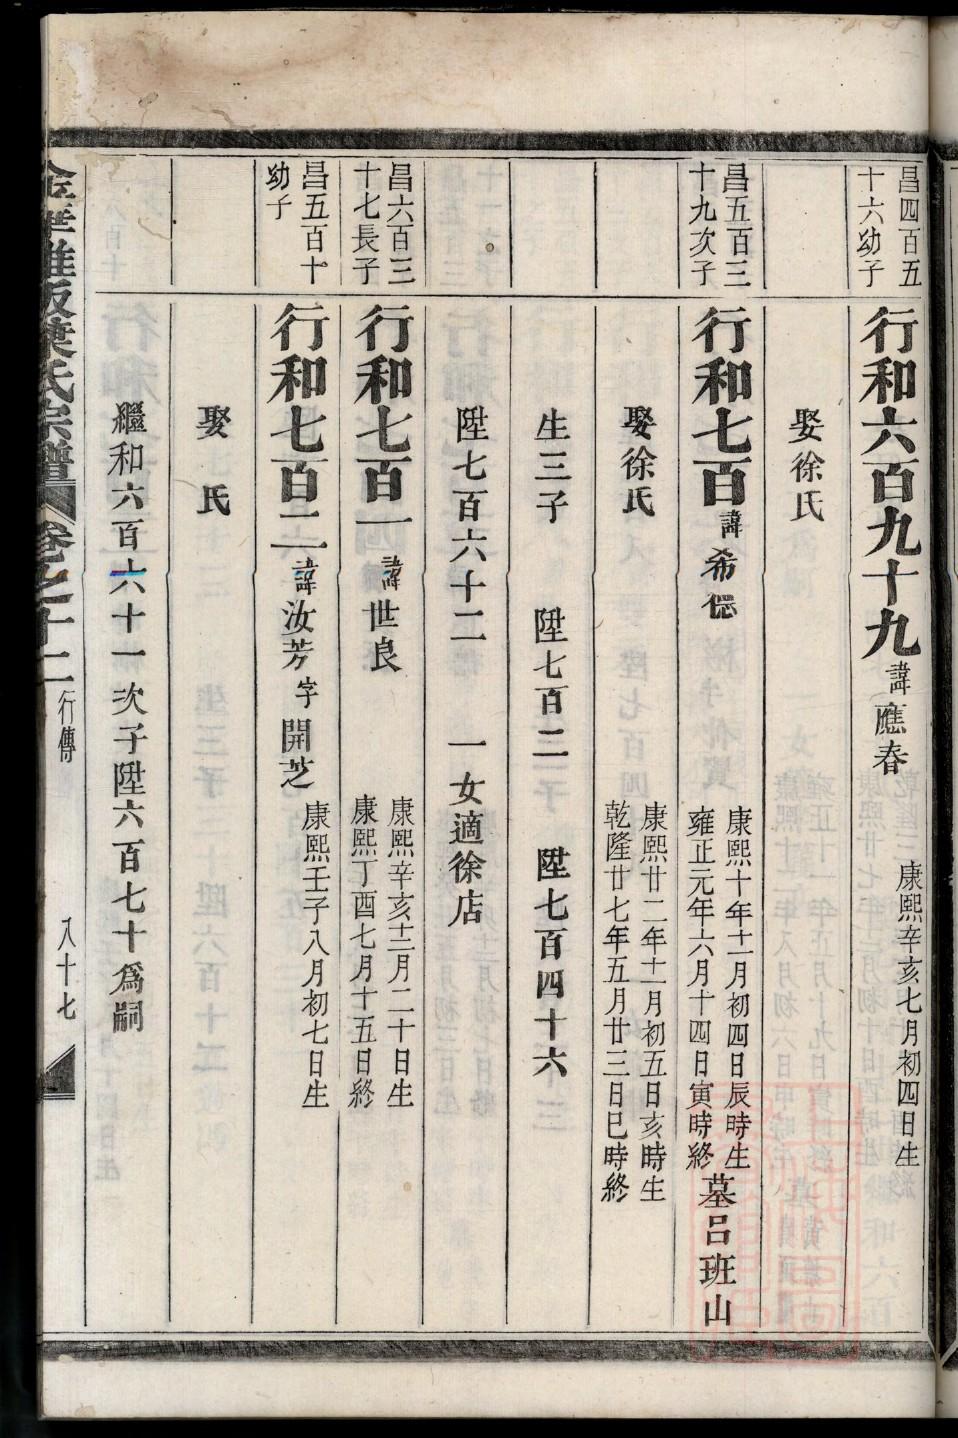 昌四百五
十六幼子
行和六百九十九 諱應春 康熙辛亥七月初四日生
娶徐氏
昌五百三
十九次子
行和七百 諱希 康熙十年十一月初四日辰時生
雍正元年六月十四日寅時終 墓呂班山
娶徐氏 康熙廿二年十一月初五日亥時生
乾隆廿七年五月廿三日巳時終
生三子 陞七百二 陞七百四十六
陞七百六十二 一女適徐店
昌六百三
十七長子
行和七百一 諱世良 康熙辛亥十二月二十日生
康熙丁酉七月十五日終
昌五百十
幼子
行和七百二 諱汝芳 字開芝 康熙壬子八月初七日生
娶 氏
繼和六百六十一次子陞六百七十為嗣
金華雅坂葉氏宗譜 卷之十二 行傳 八十七